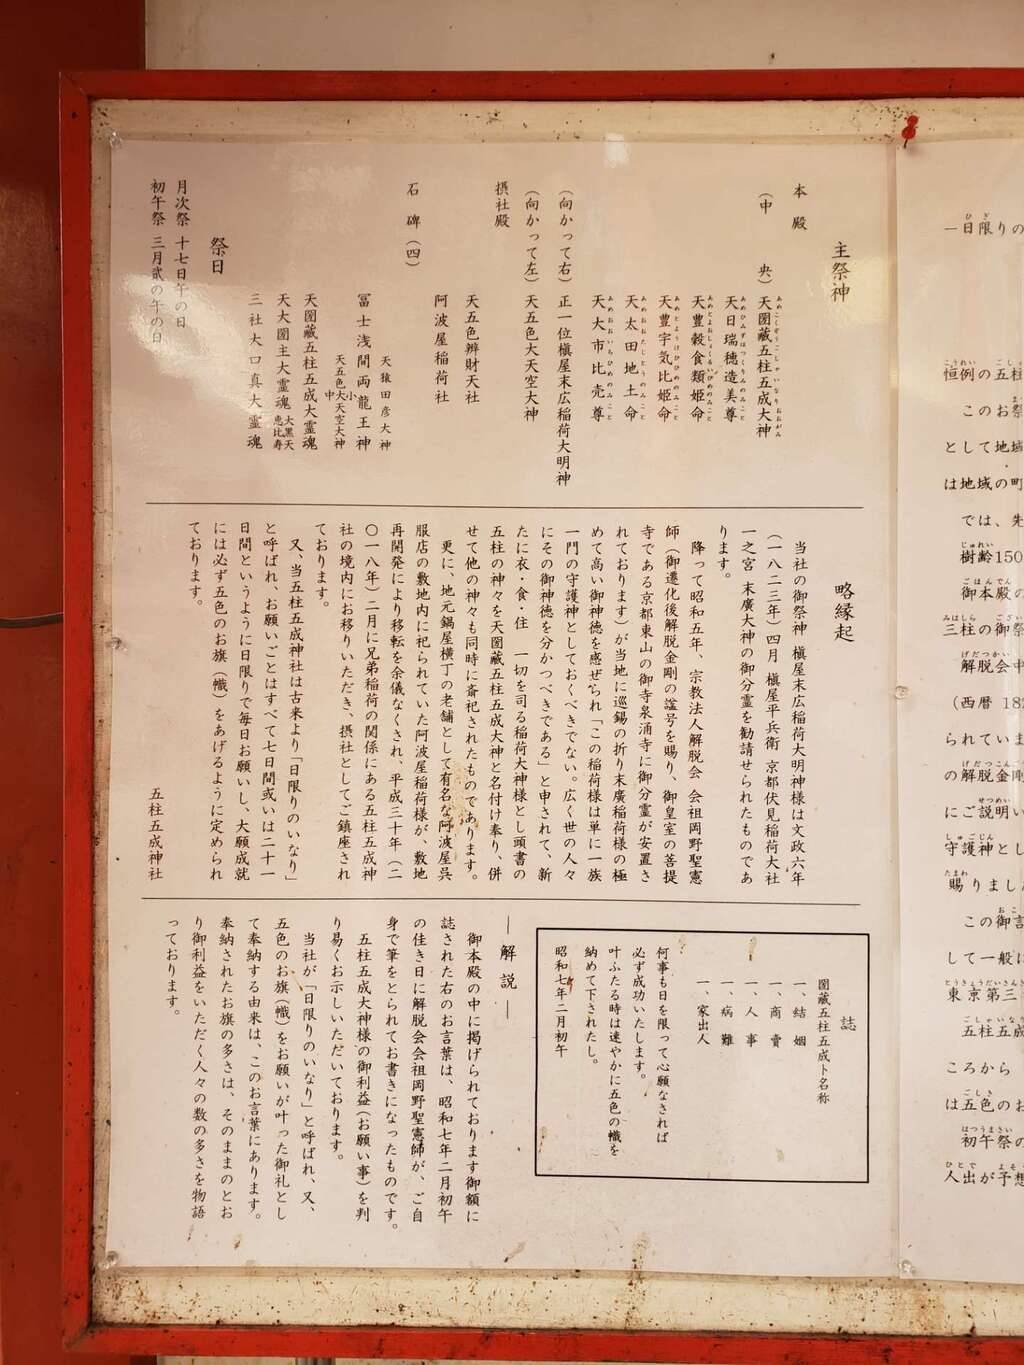 主祭神
本殿
(中　央) 天圀藏五柱五成大神
あめこくそうごしゃいなりおおがみ
天日瑞穂造美尊
天豊穀食類姫命
天豊宇気比姫命
天太田地土命
天大市比売尊
(向かって右) 正一位槇屋末広稲荷大明神
(向かって左) 天五色大天空大神
摂社殿
天五色辨財天社
阿波屋稲荷社
石　碑(四)
天猿田彦大神
冨士浅間両龍王神
天五色大天空大神
小中
天圀藏五柱五成大霊魂
天大圀主大霊魂 大黒天 恵比寿
三社大口真大霊魂
祭日
月次祭　十七日午の日
初午祭　三月貮の午の日
略縁起
当社の御祭神　槇屋末広稲荷大明神様は文政六年
(一八二三年)四月　槇屋平兵衛　京都伏見稲荷大社
一之宮　末廣大神の御分霊を勧請せられたものであ
ります。
降って昭和五年、宗教法人解脱会　会祖岡野聖憲
師(御遷化後解脱金剛の諡号を賜り、御皇室の菩提
寺である京都東山の御寺泉涌寺に御分霊が安置さ
れております)が当地に巡錫の折り末廣稲荷様の極
めて高い御神徳を感ぜられ「この稲荷様は単に一族
一門の守護神としておくべきでない。広く世の人々
にその御神徳を分かつべきである」と申されて、新
たに衣・食・住　一切を司る稲荷大神様とし頭書の
五柱の神々を天圀藏五柱五成大神と名付け奉り、併
せて他の神々も同時に斎祀されたものであります。
更に、地元鍋屋横丁の老舗として有名な阿波屋呉
服店の敷地内に祀られていた阿波屋稲荷様が、敷地
再開発により移転を余儀なくされ、平成三十年(二
〇一八年)二月に兄弟稲荷の関係にある五柱五成神
社の境内にお移りいただき、摂社としてご鎮座され
ております。
又、当五柱五成神社は古来より「日限りのいなり」
と呼ばれ、お願いごとはすべて七日間或いは二十一
日間というように日限りで毎日お願いし、大願成就
には必ず五色のお旗(幟)をあげるように定められ
ております。
五柱五成神社
誌
圀藏五柱五成ト名称
一、結　姻
一、商　賣
一、人　事
一、病　難
一、家出人
何事も日を限って心願なされば
必ず成功いたします。
叶ふたる時は速やかに五色の幟を
納めて下されたし。
昭和七年二月初午
―解　説―
御本殿の中に掲げられております御額に
誌された右のお言葉は、昭和七年二月初午
の佳き日に解脱会会祖岡野聖憲師が、ご自
身で筆をとられてお書きになったものです。
五柱五成大神様の御利益(お願い事)を判
り易くお示しいただいております。
当社が「日限りのいなり」と呼ばれ、又、
五色のお旗(幟)をお願いが叶った御礼とし
て奉納する由来は、このお言葉にあります。
奉納されたお旗の多さは、そのままのとお
り御利益をいただく人々の数の多さを物語
っております。
一日限りの
恒例の五柱
このお祭
として地域
は地域の町
では、先
樹齢150
御本殿の
三柱の御祭
解脱会中
(西暦 182
られていま
の解脱金剛
にご説明い
守護神とし
賜りました
この御言
して一般に
東京第三
五柱五成
ころから
は五色のお
初午祭の
人出が予想